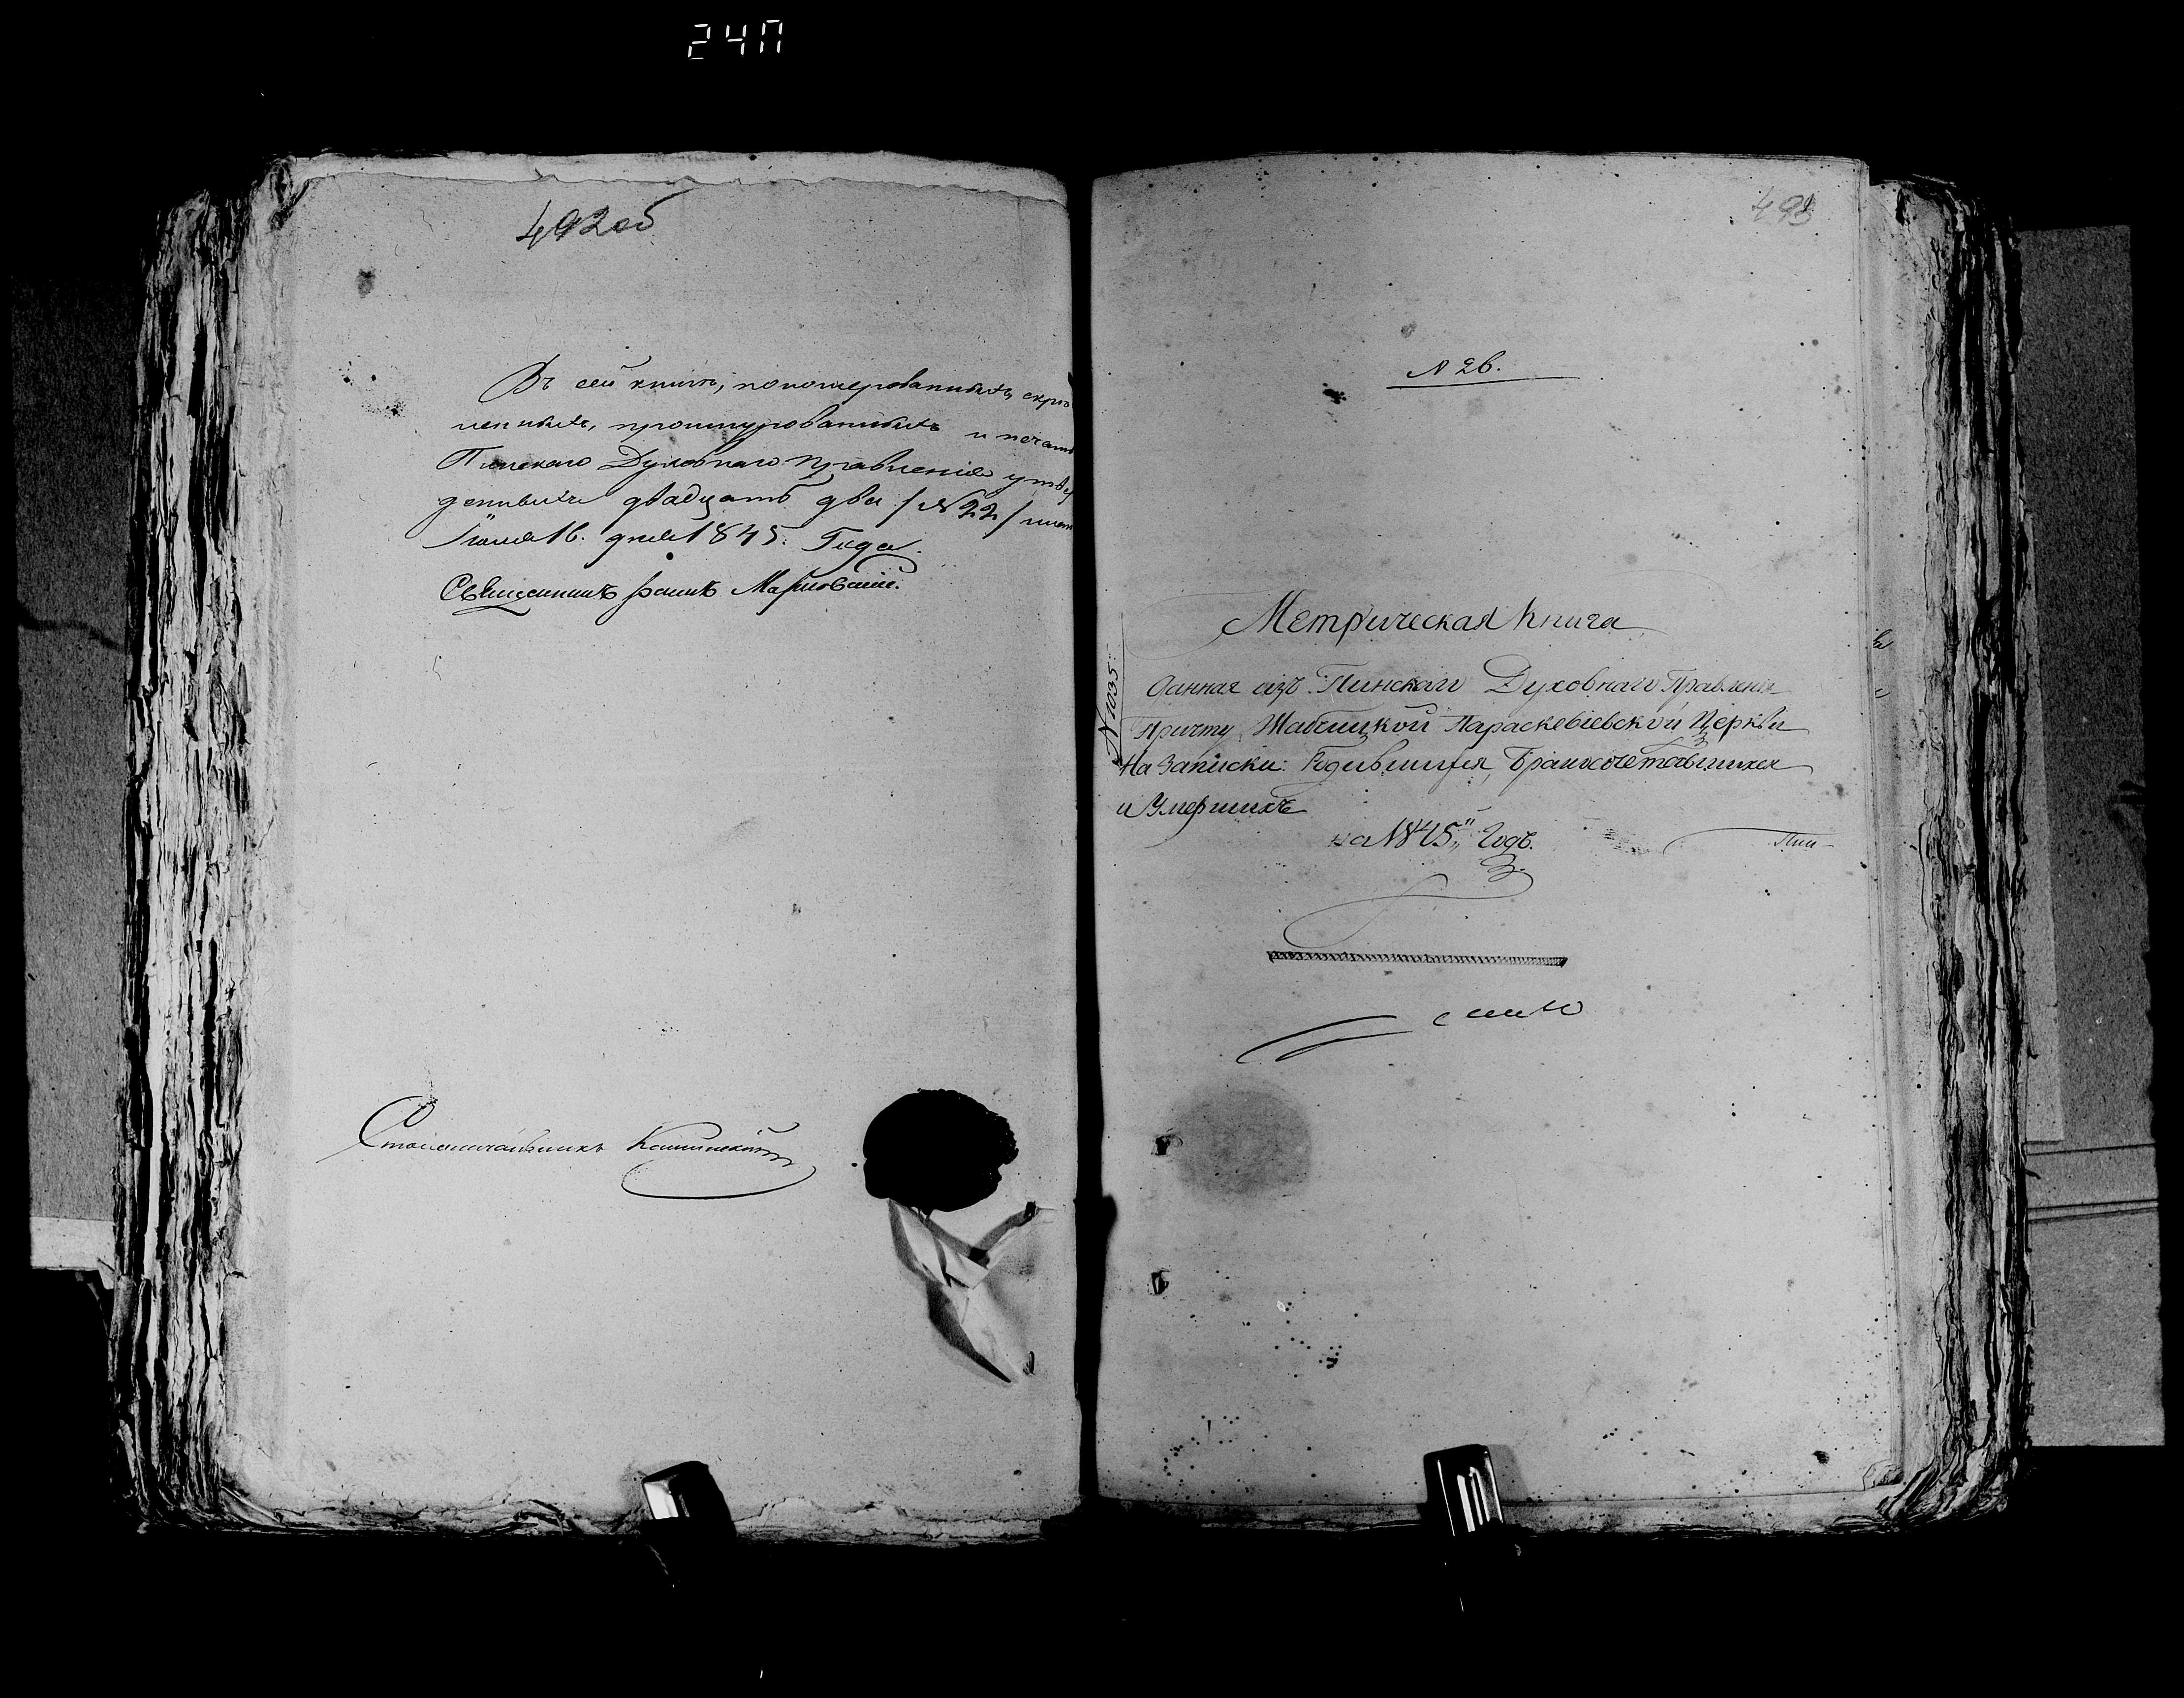 24П
492об
Въ сей книгѣ, пономерованныхъ, скрѣ
пленныхъ, прошнурованныхъ и печатью
Пинскаго Духовнаго Правленія утвер
денныхъ двадцать два /№22/ лист
Іюля 16. дня 1845. Года.
Священникъ
Столоначальникъ
493
№ 26.
Метрическая Книга
№ 1035
Данная изъ Пинскаго Духовнаго Правленія
Причту Параскевіевской Церкви
На Записки: Родившихся, Бракосочетавшихся
и Умершихъ
на 1845 Годъ.